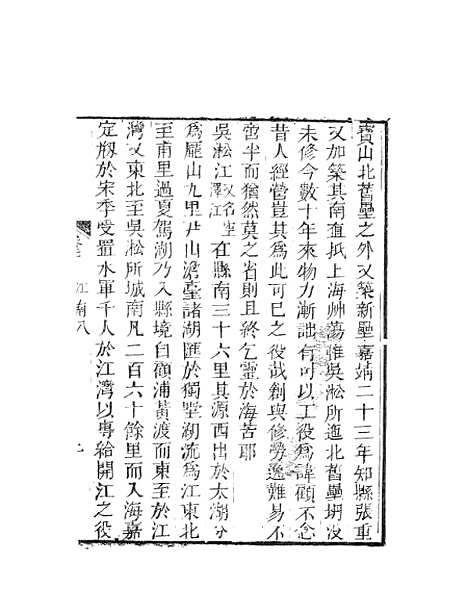 寶山北舊壘之外又築新壘嘉靖二十三年知縣張重
又加築其南直抵上海艸蕩惟吳淞所迤北舊壘坍没
未修今數十年來物力漸詘有司以工役爲諱顧不念
昔人經營豈其爲此可已之役哉創與修勞逸難易不
啻半而猶然莫之省則且終乞靈於海若耶
吳淞江又名笠澤江在縣南三十六里其源西出於太湖分
爲龐山九里尹山澹臺諸湖匯於獨墅湖流爲江東北
至甫里過夏駕湖乃入縣境自顧浦黃渡而東至於江
灣又東北至吳淞所城南凡二百六十餘里而入海嘉
定剏於宋季受置水軍千人於江灣以專給開江之役
江南八